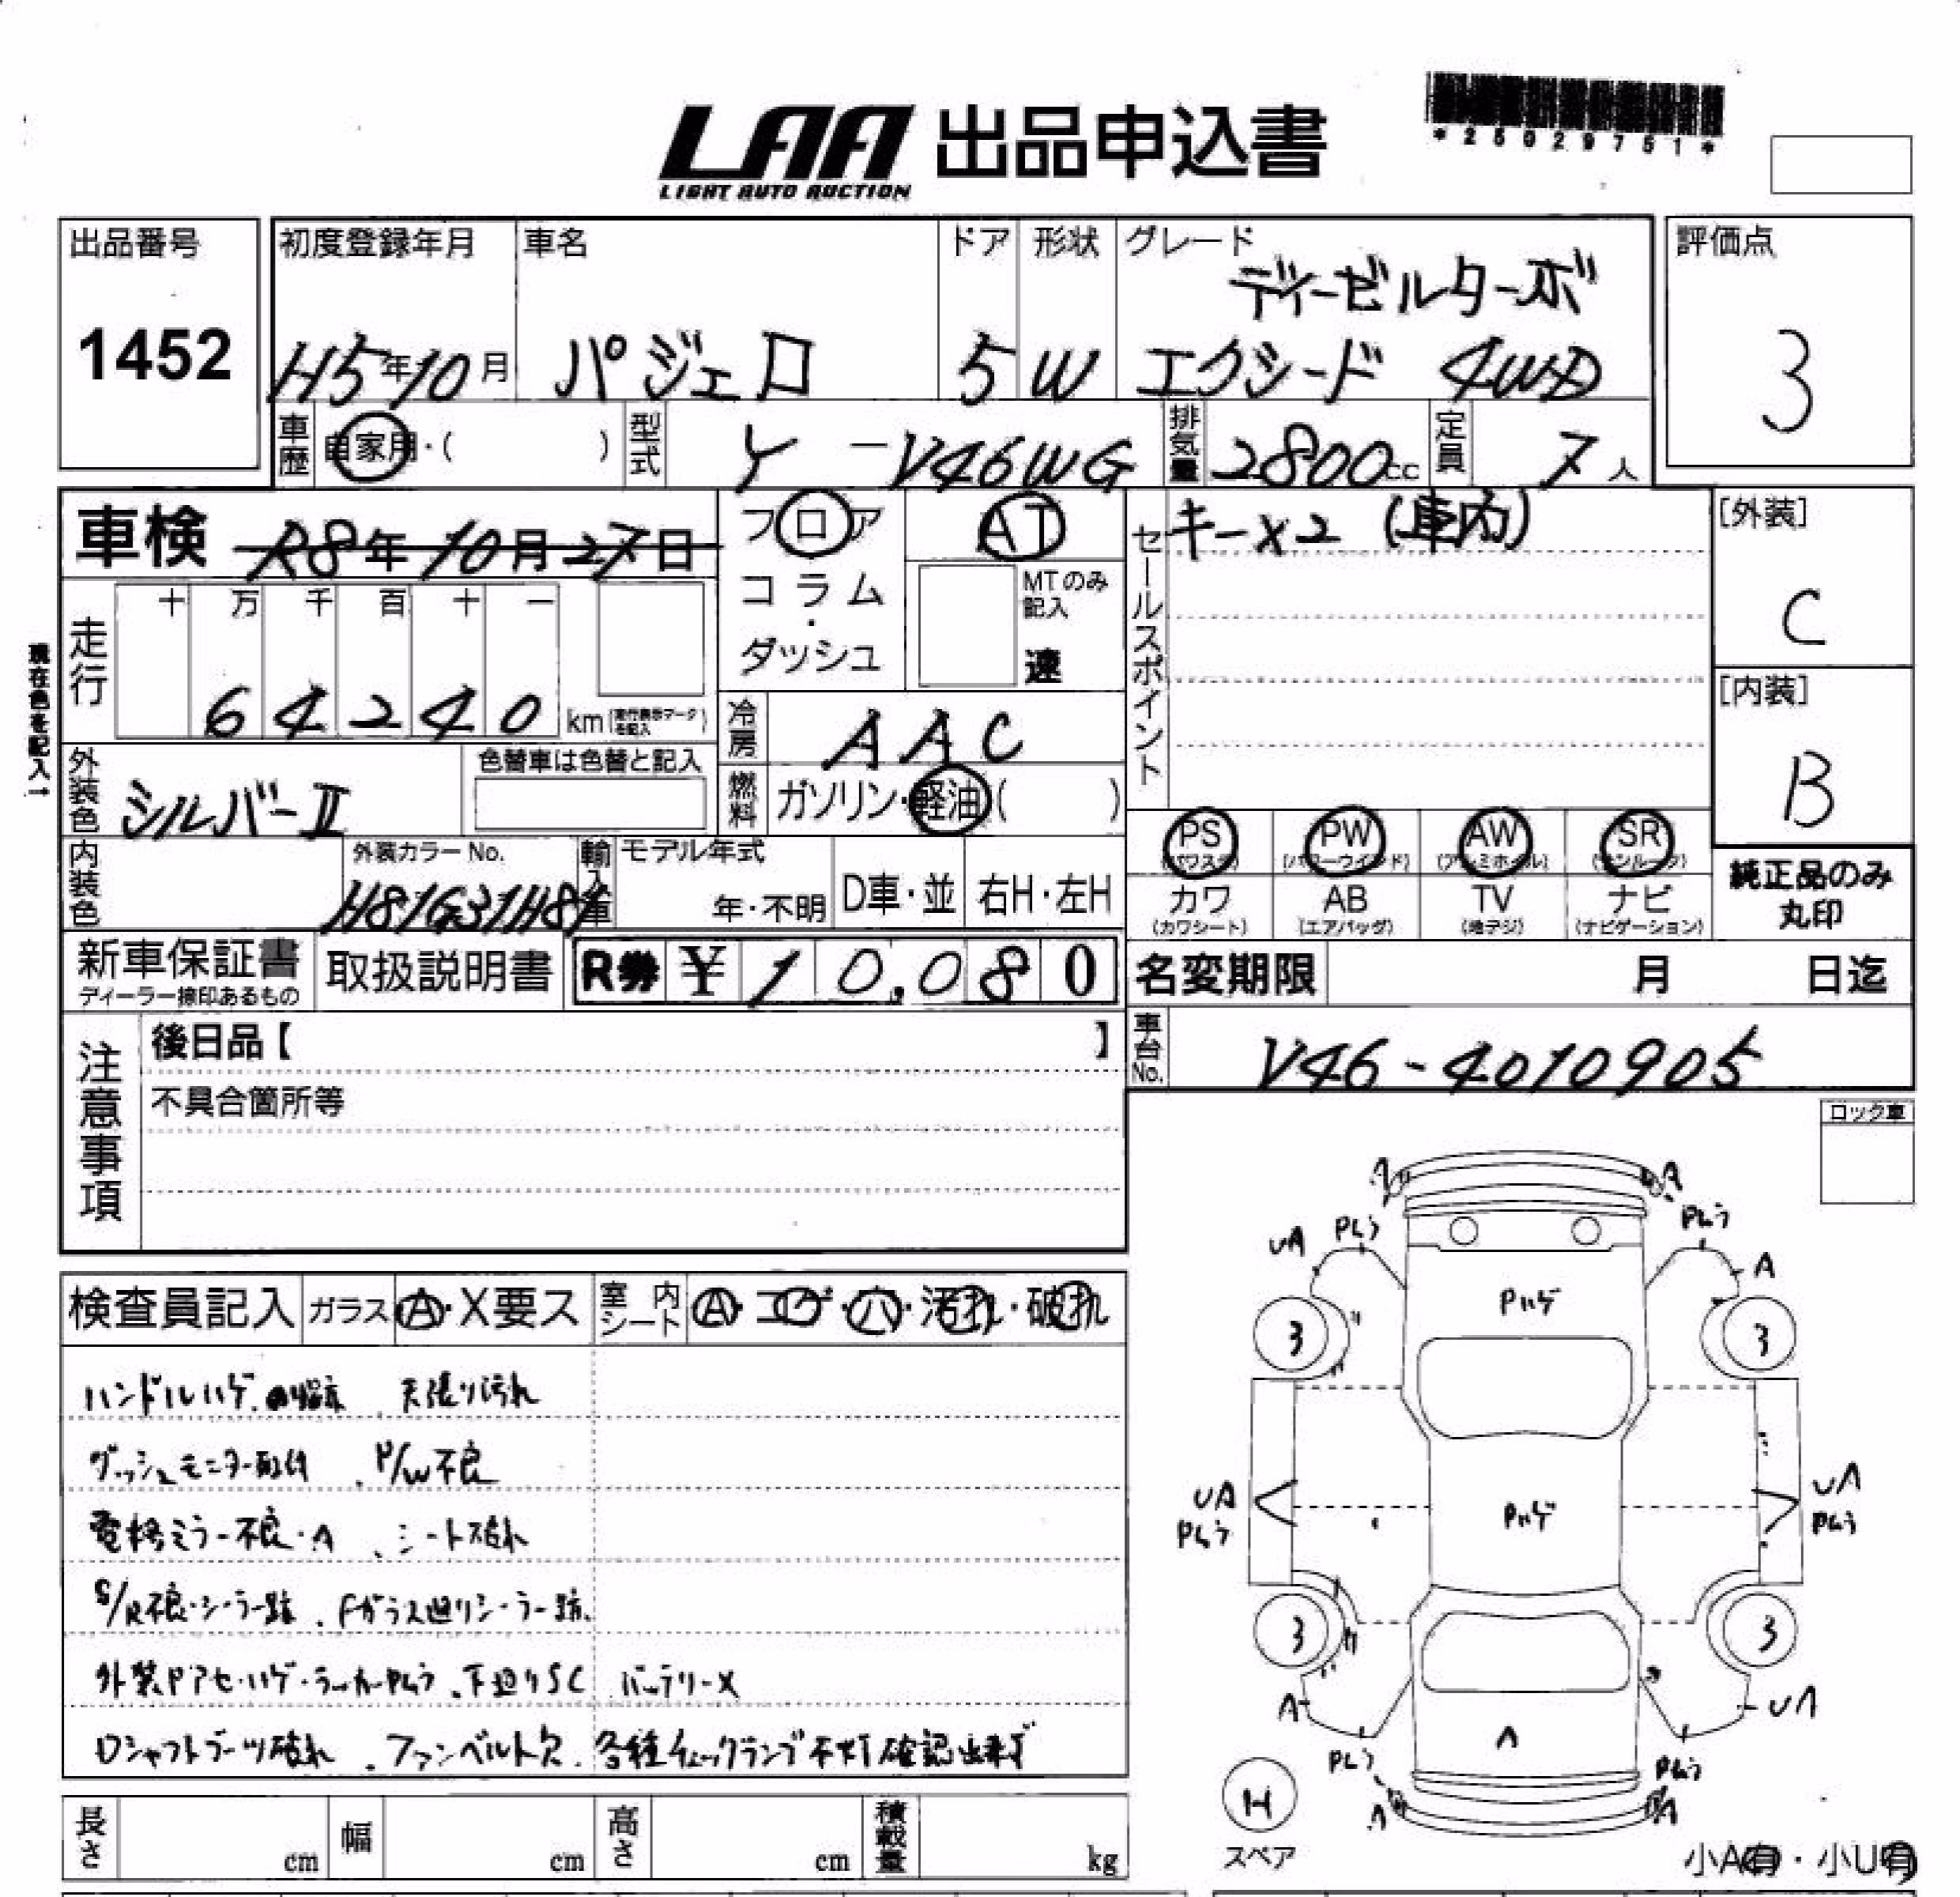 LAA 出品申込書
LIGHT AUTO AUCTION
*25029751*
出品番号
1452
初度登録年月
H5年10月
車名
パジェロ
ドア
5
形状
W
グレード
ディーゼルターボ
エクシード 4WD
評価点
3
車歴
自家用・( )
型式
Y-V46WG
排気量
2800cc
定員
7人
車検 R8年10月27日
フロア
コラム
・
ダッシュ
AT
MTのみ記入
速
セールスポイント
キー×2 (車内)
[外装]
C
[内装]
B
現在色を記入→
走行
十 万 千 百 十 一
64240 km (走行表示データを記入)
冷房
AAC
燃料
ガソリン・軽油( )
外装色
シルバーⅡ
色替車は色替と記入
内装色
外装カラーNo.
輸入車
モデル年式
年・不明
D車・並
右H・左H
PS (パワステ)
PW (パワーウインド)
AW (アルミホイル)
SR (サンルーフ)
カワ (カワシート)
AB (エアバッグ)
TV (地デジ)
ナビ (ナビゲーション)
純正品のみ
丸印
新車保証書
ディーラー捺印あるもの
取扱説明書
R券 ¥10,080
名変期限 月 日迄
車台No.
V46-4010905
注意事項
後日品【 】
不具合箇所等
ロック車
検査員記入
ガラス A・X要ス
室内シート A・コゲ・穴・汚れ・破れ
ハンドルハゲ. 天張り汚れ
ダッシュモニター取付 . P/W不良
電格ミラー不良・A . シート破れ
S/R不良・シーラー跡 . Fガラス廻りシーラー跡.
外装Pアセ・ハゲ・ラッカーPムラ . 下廻りSC バッテリーX
Dシャフトブーツ破れ . ファンベルト欠 . 各種チェックランプ不灯確認出来ず
A A
UA Pムラ Pムラ A
Pハゲ
3 3
UA
Pムラ
Pハゲ
UA
Pムラ
3 3
A UA
A
Pムラ Pムラ
A A
H
スペア
小A有・小U有
長さ cm
幅 cm
高さ cm
積載量 kg